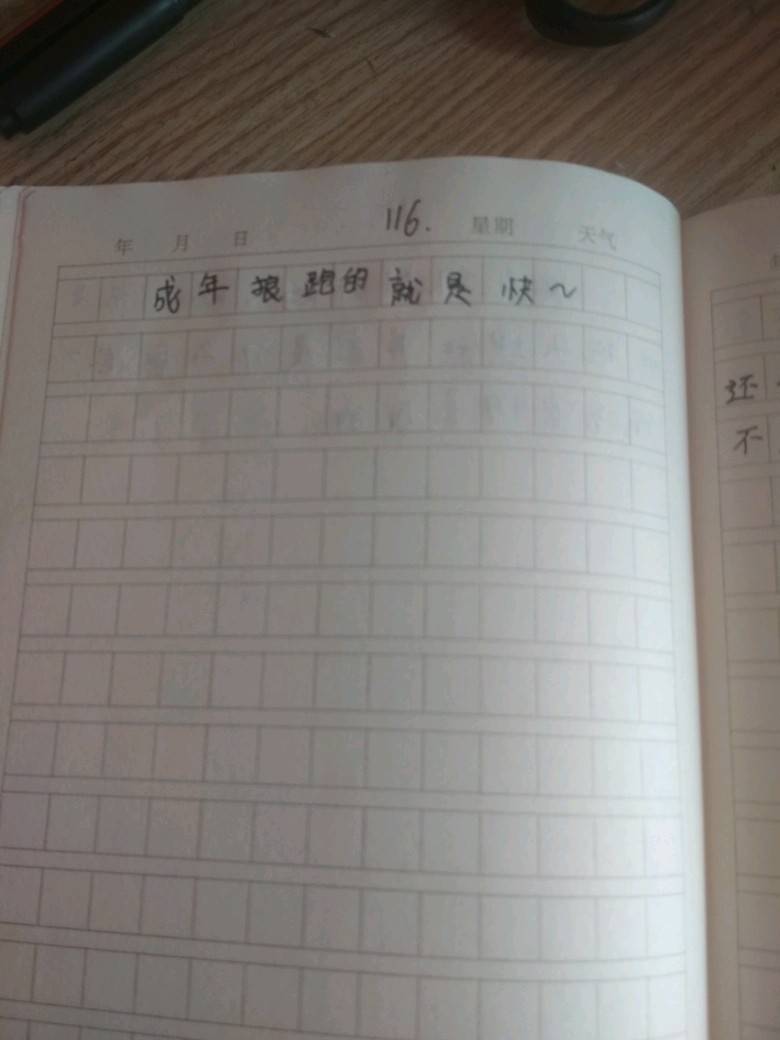 年 月 日 116. 星期 天气
成年狼跑的就是快~
还
不